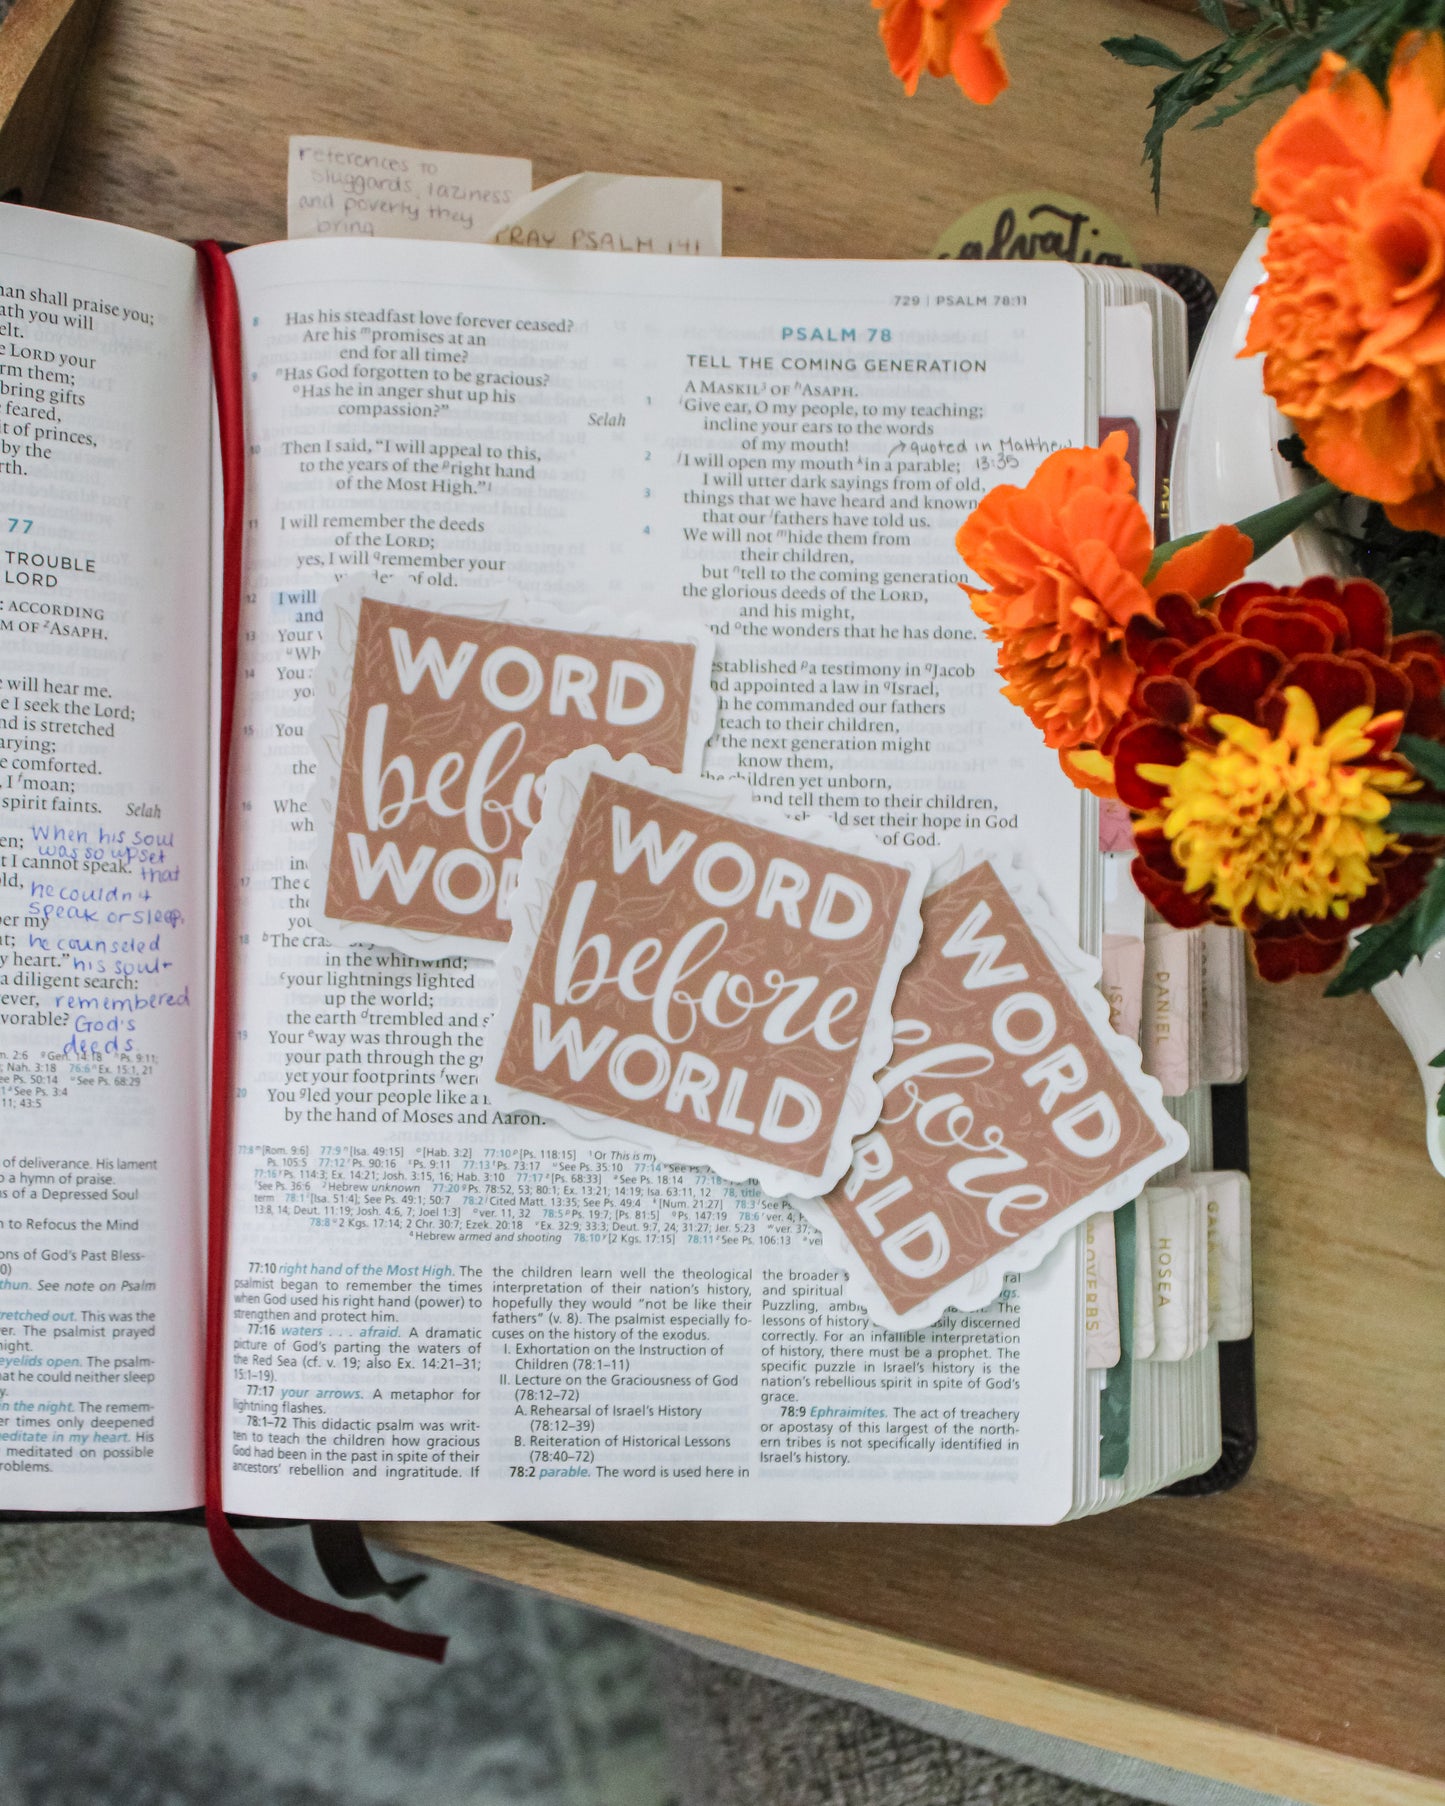 references to
sluggards, laziness
and poverty they
bring
PRAY PSALM 141
salvation
man shall praise you;
ath you will
elt.
e LORD your
rm them;
bring gifts
feared,
it of princes,
by the
rth.
77
TROUBLE
LORD
: ACCORDING
M OF ᶻASAPH.
will hear me.
e I seek the Lord;
nd is stretched
arying;
e comforted.
, I ᶠmoan;
spirit faints. Selah
en; When his soul
was so upset
t I cannot speak. that
old, he couldn't
speak or sleep.
er my
t; he counseled
y heart." his soul +
a diligent search:
ever, remembered
vorable? God's
deeds
m. 2:6 ᵍGen. 14:18 Ps. 9:11;
; Nah. 3:18 76:6 Ex. 15:1, 21
ee Ps. 50:14 See Ps. 68:29
See Ps. 3:4
11; 43:5
of deliverance. His lament
o a hymn of praise.
s of a Depressed Soul
n to Refocus the Mind
ons of God's Past Bless-
0)
thun. See note on Psalm
retched out. This was the
er. The psalmist prayed
night.
eyelids open. The psalm-
hat he could neither sleep
y.
in the night. The remem-
er times only deepened
meditate in my heart. His
meditated on possible
roblems.
8 Has his steadfast love forever ceased?
Are his ᵐpromises at an
end for all time?
9 ⁿHas God forgotten to be gracious?
ᵒHas he in anger shut up his
compassion?"
Selah
10 Then I said, "I will appeal to this,
to the years of the ᵖright hand
of the Most High."¹
11 I will remember the deeds
of the LORD;
yes, I will ᵠremember your
of old.
12 I will
and
13 Your
ᵘWh
14 You
yo
15 You
the
16 Whe
wh
in
17 The c
the
you
18 ᵇThe
in the whirlwind;
ᶜyour lightnings lighted
up the world;
the earth ᵈtrembled and s
19 Your ᵉway was through the
your path through the g
yet your footprints ᶠwer
20 You ᵍled your people like a
by the hand of Moses and Aaron.
729 | PSALM 78:11
PSALM 78
TELL THE COMING GENERATION
A MASKIL³ OF ʰASAPH.
1 ⁱGive ear, O my people, to my teaching;
incline your ears to the words
of my mouth! → quoted in Matthew
2 ʲI will open my mouth ᵏin a parable; 13:35
I will utter dark sayings from of old,
3 things that we have heard and known,
that our ˡfathers have told us.
4 We will not ᵐhide them from
their children,
but ⁿtell to the coming generation
the glorious deeds of the LORD,
and his might,
nd ᵒthe wonders that he has done.
established ᵖa testimony in ᵠJacob
nd appointed a law in ᵠIsrael,
h he commanded our fathers
teach to their children,
the next generation might
know them,
the children yet unborn,
and tell them to their children,
should set their hope in God
of God.
WORD
befo
WO
WORD
before
WORLD
WORD
before
RLD
77:8 ᵐ[Rom. 9:6] 77:9 ⁿ[Isa. 49:15] ᵒ[Hab. 3:2] 77:10 ᵖ[Ps. 118:15] ¹Or This is my
Ps. 105:5 77:12 Ps. 90:16 Ps. 9:11 77:13 Ps. 73:17 See Ps. 35:10 77:14 See Ps. 7
77:16 Ps. 114:3; Ex. 14:21; Josh. 3:15, 16; Hab. 3:10 77:17 [Ps. 68:33] See Ps. 18:14 77:18
See Ps. 36:6 ²Hebrew unknown 77:20 ᵍPs. 78:52, 53; 80:1; Ex. 13:21; 14:19; Isa. 63:11, 12 78, title
term 78:1 [Isa. 51:4]; See Ps. 49:1; 50:7 78:2 Cited Matt. 13:35; See Ps. 49:4 [Num. 21:27] 78:3
13:8, 14; Deut. 11:19; Josh. 4:6, 7; [Joel 1:3] ver. 11, 32 78:5 Ps. 19:7; [Ps. 81:5] Ps. 147:19 78:6 ver. 4,
78:8 2 Kgs. 17:14; 2 Chr. 30:7; Ezek. 20:18 Ex. 32:9; 33:3; Deut. 9:7, 24; 31:27; Jer. 5:23 ver. 37,
⁴Hebrew armed and shooting 78:10 [2 Kgs. 17:15] 78:11 See Ps. 106:13 ver
77:10 right hand of the Most High. The
psalmist began to remember the times
when God used his right hand (power) to
strengthen and protect him.
77:16 waters . . . afraid. A dramatic
picture of God's parting the waters of
the Red Sea (cf. v. 19; also Ex. 14:21–31;
15:1–19).
77:17 your arrows. A metaphor for
lightning flashes.
78:1–72 This didactic psalm was writ-
ten to teach the children how gracious
God had been in the past in spite of their
ancestors' rebellion and ingratitude. If
the children learn well the theological
interpretation of their nation's history,
hopefully they would "not be like their
fathers" (v. 8). The psalmist especially fo-
cuses on the history of the exodus.
I. Exhortation on the Instruction of
Children (78:1–11)
II. Lecture on the Graciousness of God
(78:12–72)
A. Rehearsal of Israel's History
(78:12–39)
B. Reiteration of Historical Lessons
(78:40–72)
78:2 parable. The word is used here in
the broader s
and spiritual
Puzzling, ambig The
lessons of history easily discerned
correctly. For an infallible interpretation
of history, there must be a prophet. The
specific puzzle in Israel's history is the
nation's rebellious spirit in spite of God's
grace.
78:9 Ephraimites. The act of treachery
or apostasy of this largest of the north-
ern tribes is not specifically identified in
Israel's history.
ISA
DANIEL
PROVERBS
HOSEA
GALA